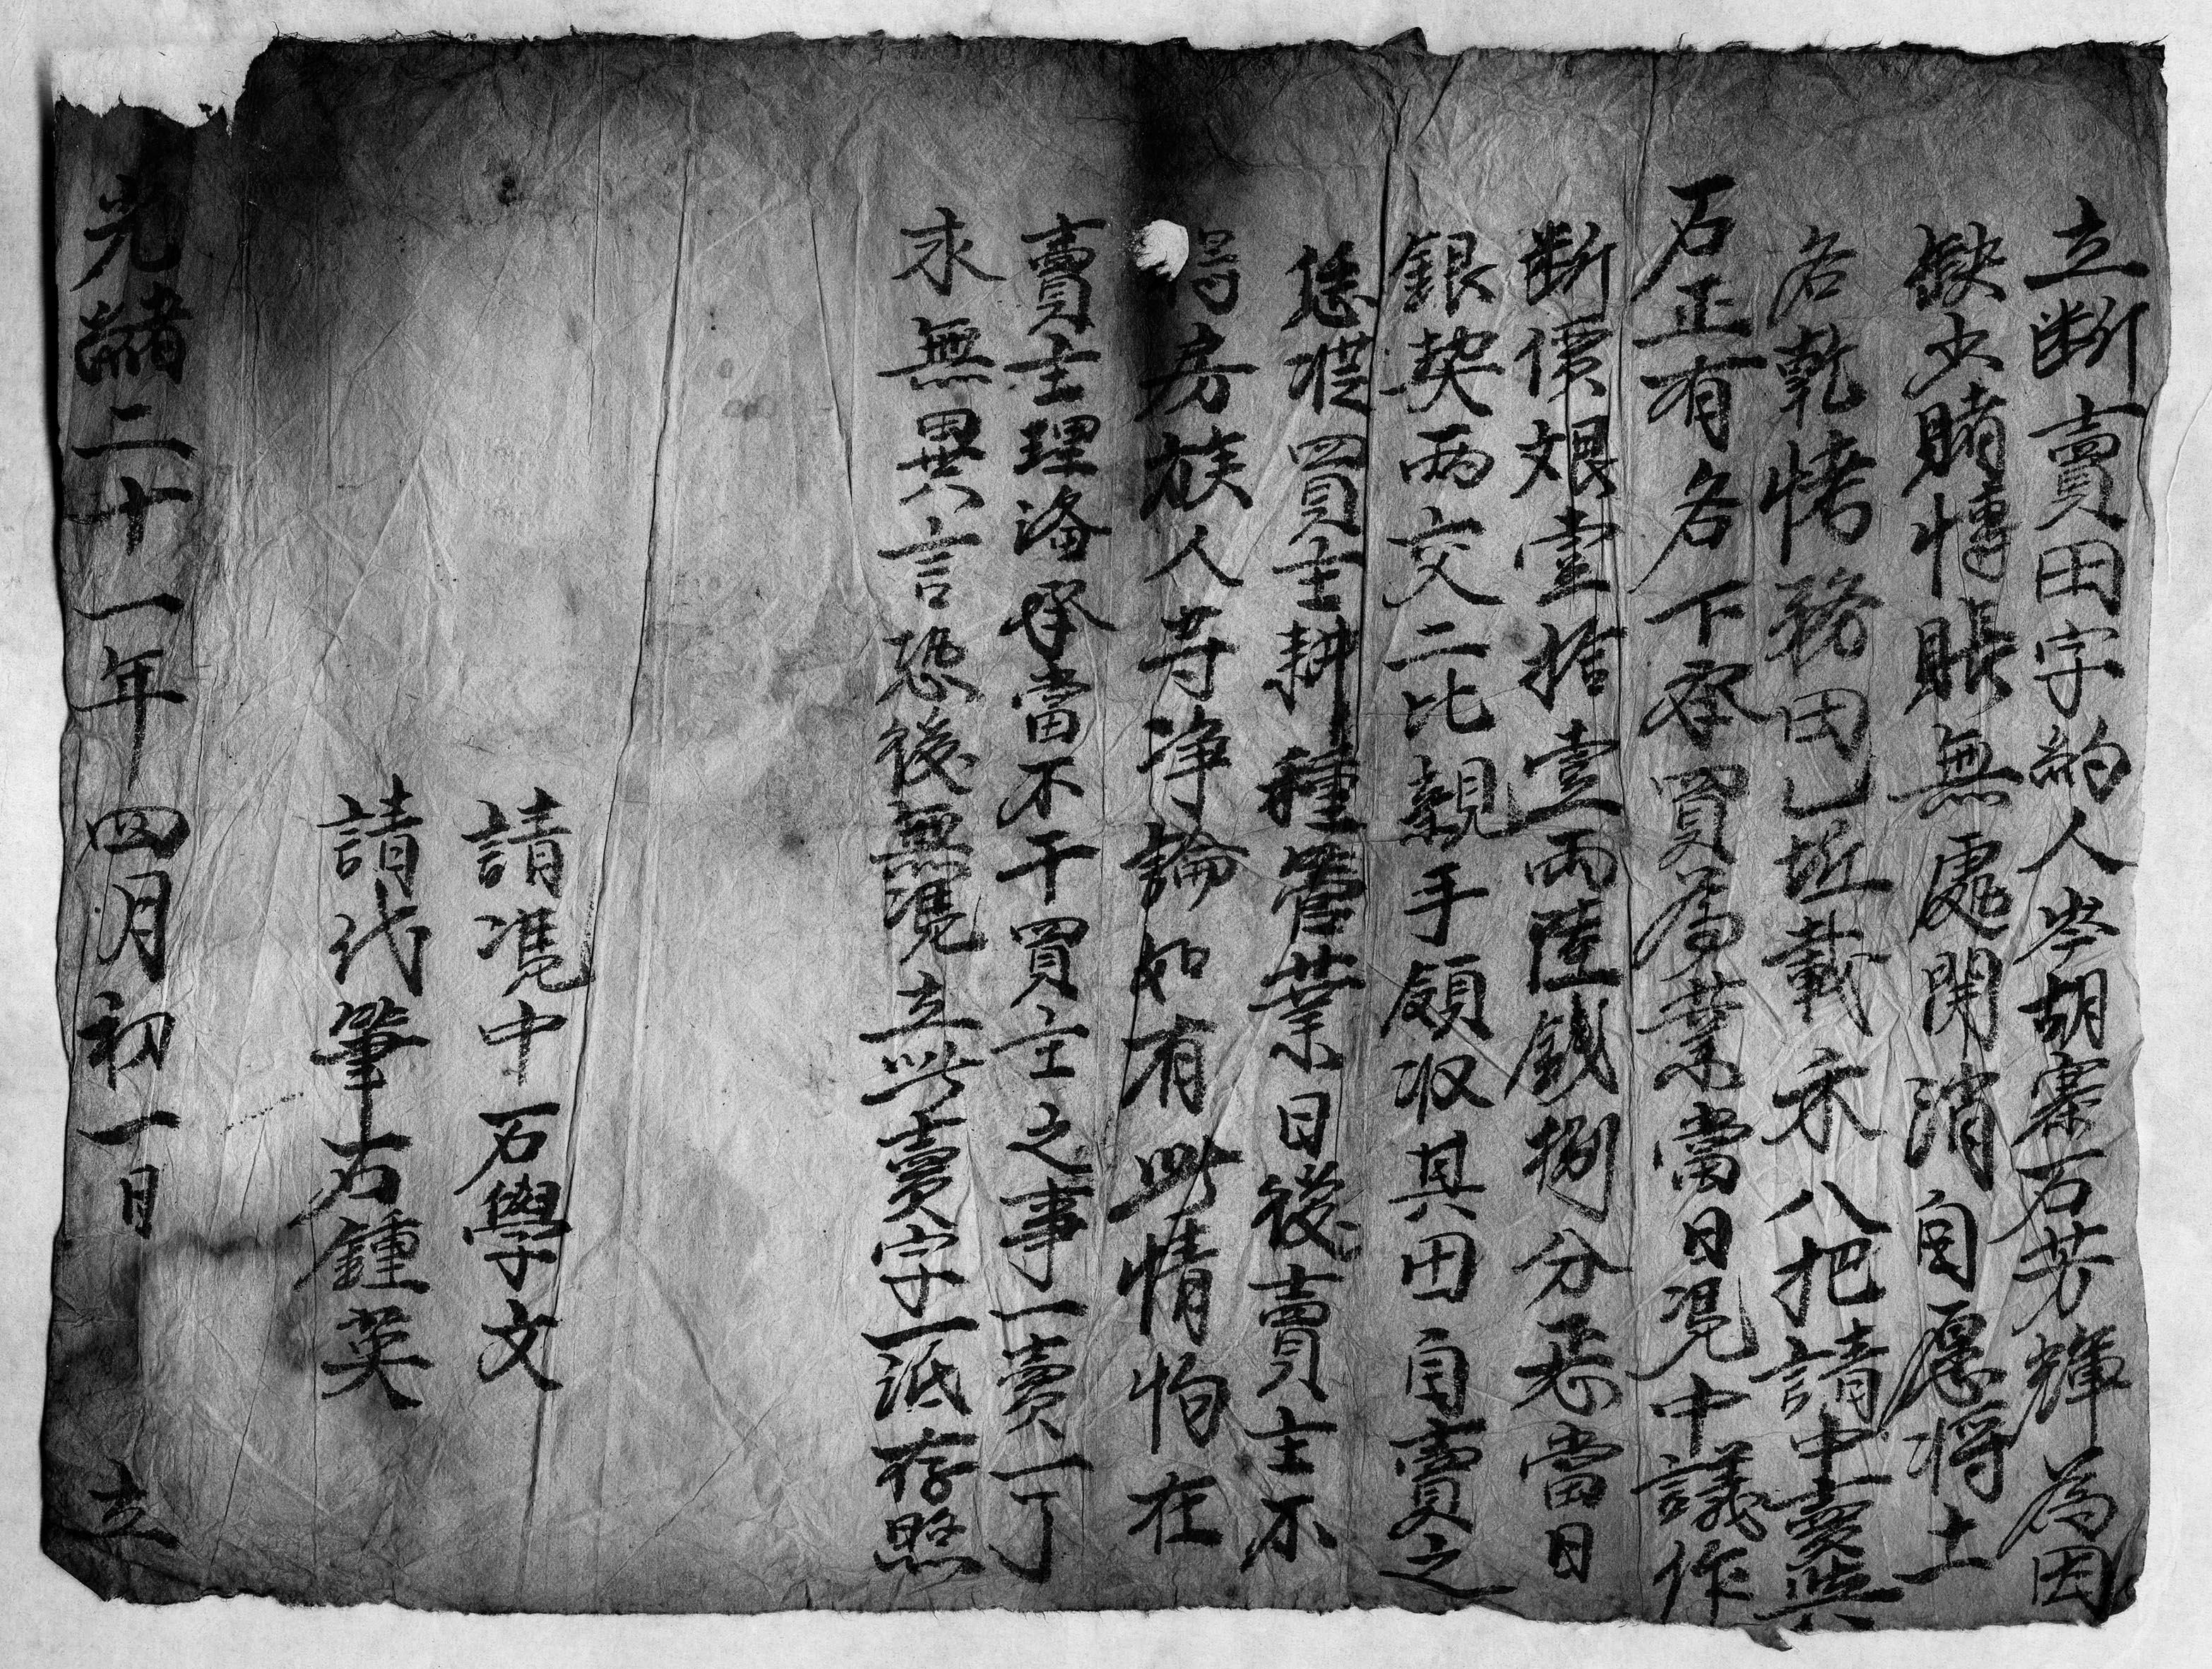 立断賣田字約人岑胡寨石芳輝為因
缺少賭博賬無處開消自愿将土
名乾烤務田乚坵載禾八把請中賣與
石正有名下承買為業當日凴中議作
断價艮壹拾壹両陸錢捌分恁當日
銀契両交二比親手領収其田自賣之
後買主耕種管業日後賣主不
得房族人等净論如有此情怕在
賣主理洛承當不干買主之事一賣一了
求無異言恐後無凴立此賣字一紙存照
請凴中石學文
請代筆石鍾英
光緒二十一年四月初一日立